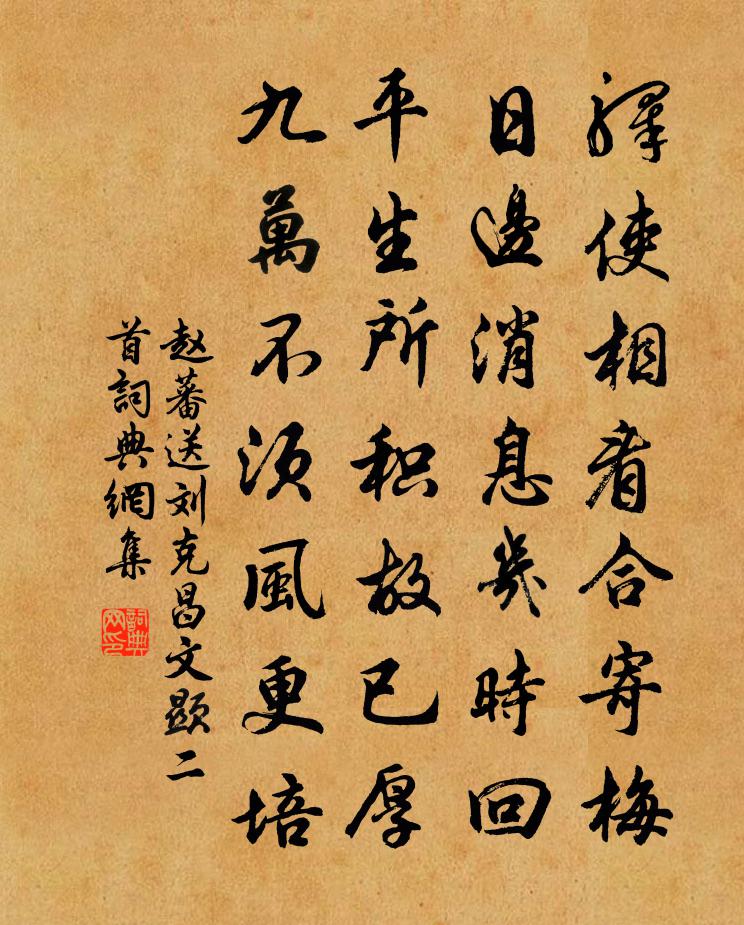 驛使相看合寄梅
日邊消息幾時回
平生所积故已厚
九萬不須風更培
赵蕃送刘克昌文顕二
首詞典網集
詞典网印